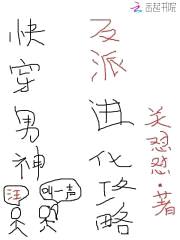 云起书院
快穿男神
反派进化攻略
关怼怼·著
汪
叫一声